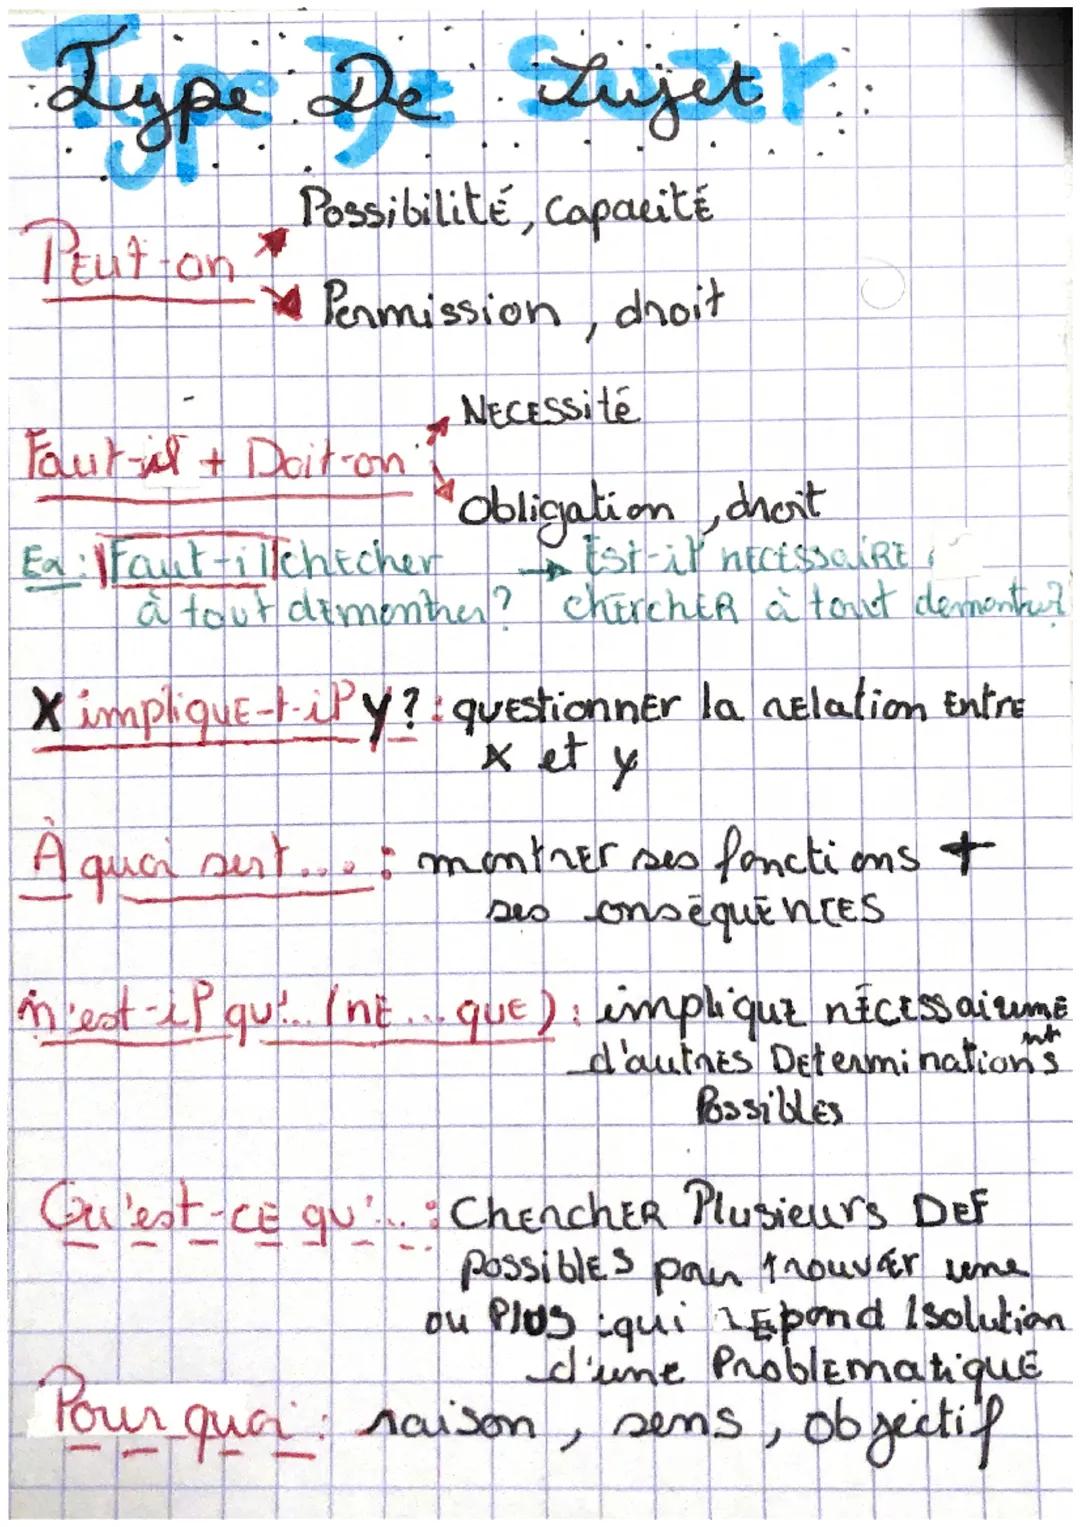 Type De Sujet
Possibilité, capacité
Peut-on
Permission, droit
Nécessité
Faut-il + Doit-on
Obligation, droit
Ex: Faut-il chercher → Est-il nécessaire
à tout démontrer ? chercher à tout démontrer?
X implique-t-il y? : questionner la relation entre
x et y
À quoi sert... : montrer ses fonctions +
ses conséquences
n'est-il qu'... (ne... que) : implique nécessaireme
nt
d'autres Déterminations
Possibles
Qu'est-ce qu'... : Chercher Plusieurs DEF
possibles pour trouver une
ou Plus : qui répond 1 solution
d'une Problématique
Pourquoi : raison, sens, objectif